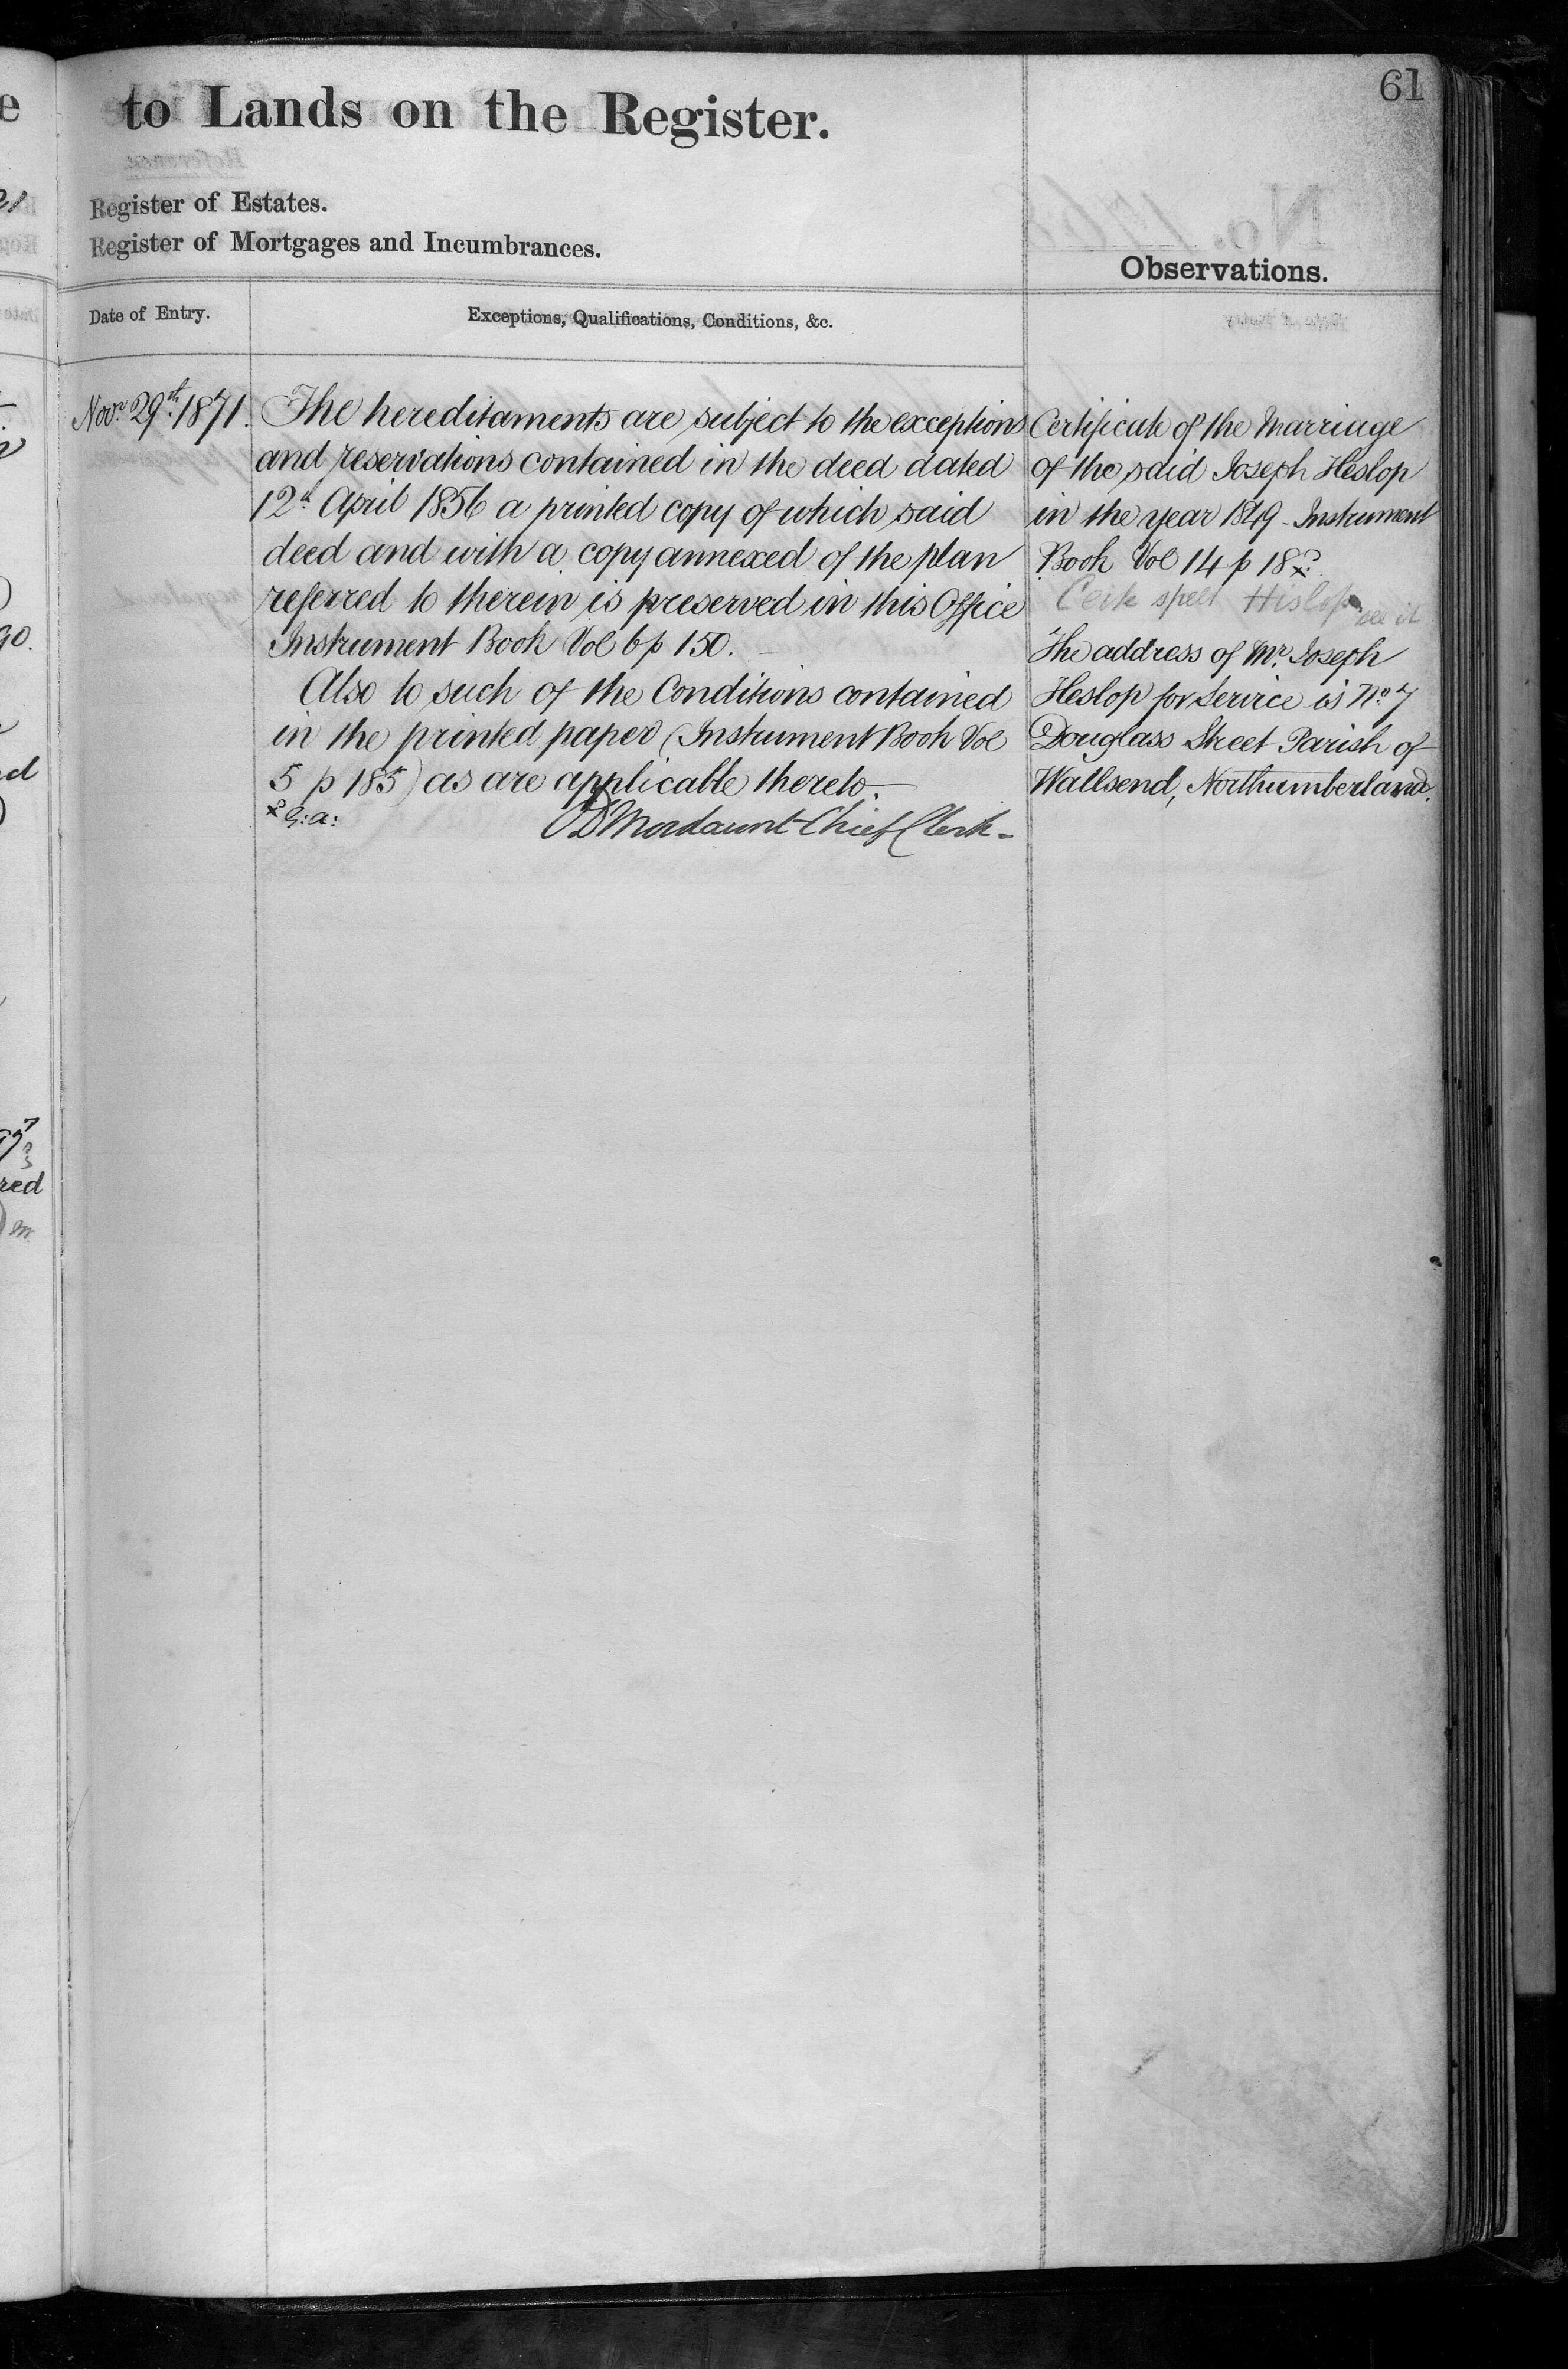 61
to Lands on the Register.
Register of Estates.
Register of Mortgages and Incumbrances.
Observations.
Date of Entry.
Exceptions, Qualifications, Conditions, &c.
Novr. 29th. 1871.
The hereditaments are subject to the exceptions
and reservations contained in the deed dated
12th April 1856 a printed copy of which said
deed and with a copy annexed of the plan
referred to therein is preserved in this Office
Instrument Book Vol 6 p 150.
Also to such of the Conditions contained
in the printed paper (Instrument Book Vol
5 p 185) as are applicable thereto.
G: A:
Mordaunt Chief Clerk
Certificate of the Marriage
of the said Joseph Heslop
in the year 1849 - Instrument
Book Vol 14 p 18
spelt Hislop see it
The address of Mr. Joseph
Heslop for Service is No. 7
Douglass Street Parish of
Wallsend, Northumberland.